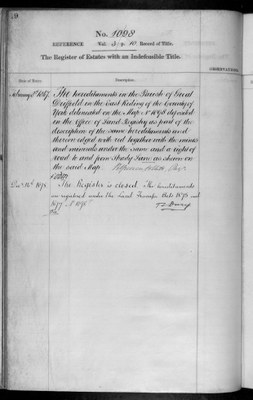 No. 1098
REFERENCE Vol. 3 p. 10 Record of Title.
The Register of Estates with an Indefeasible Title.
OBSERVATIONS
Date of Entry. Description.
The hereditaments in the Parish of Great
Driffield in the East Riding of the County of
York delineated on the Map No 1098 deposited
in the Office of Land Registry as part of the
description of the same hereditaments and
thereon edged with red together with the mines
and minerals under the same and a right of
road to and from Shady Lane as shewn on
the said Map.
The Register is closed. The hereditaments
are registered under the Land Transfer Acts 1875 and